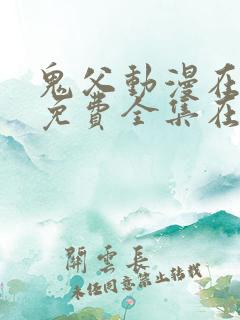 鬼父動漫在
免費全集在
關雲長
未經同意禁止轉載